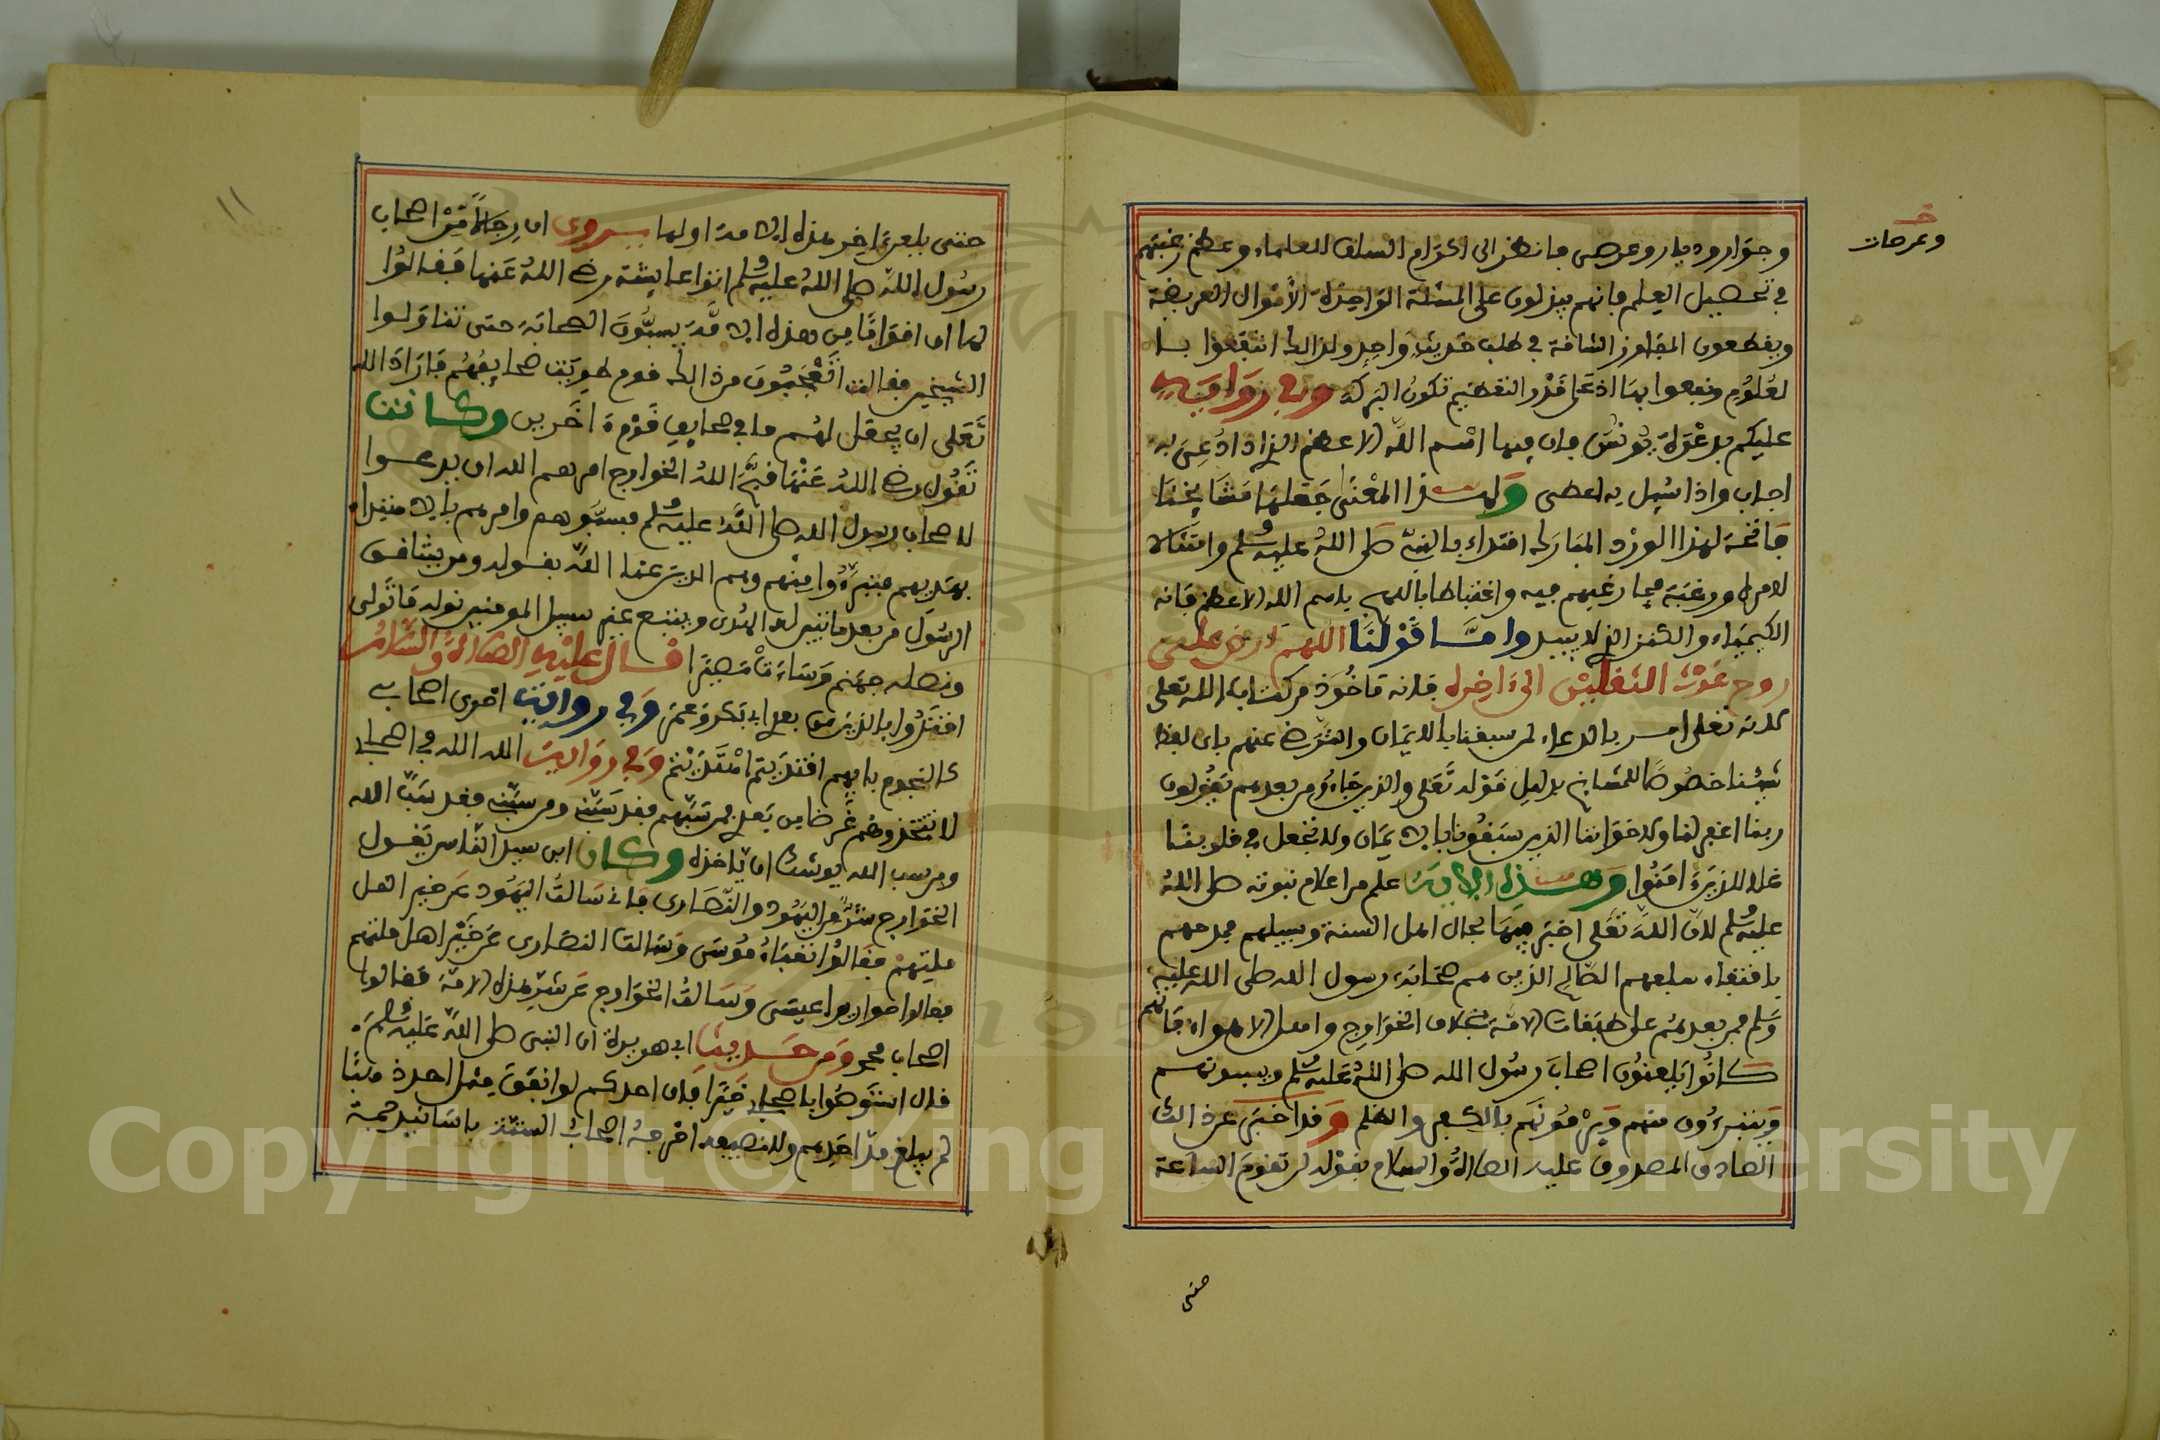 وعرصات
وجوار ودیار وعرصى فانظر الى اكرام السلف للعلماء وعظم رغبتهم
في تحصيل العلم فانهم يبذلون على المسئلة الواحدة الأموال العريضة
ويقطعون المفاوز الشاقة في طلب حديث واحد ولذالك انتفعوا با
لعلوم ونفعوا بها اذ على قدر التعظيم تكون البركة وفي رواية
عليكم بدعوة يونس فان فيها اسم الله الاعظم الذي اذا دعي به
اجاب واذا سيل به اعطى ولهذا المعنى جعلها مشايخنا
فاتحة لهذا الورد المبارك اقتداء بالنبي صلى الله عليه وسلم وامتثالا
لامره ورغبة فيما رغبهم فيه واغتباطا بالهم باسم الله الاعظم فانه
الكيمياء والكنز الذي لا يبيد واما قولنا اللهم ارض على
روح غوث الثقلين الى ءاخره فلانه ماخوذ من كتاب الله تعلى
لانه تعلى امر بالدعاء لمن سبقنا بالايمان والترضي عنهم باي لفظ
شئنا خصوصا للمشايخ بدليل قوله تعلى والذين جاءو من بعدهم يقولون
ربنا اغفر لنا ولاخواننا الذين سبقونا بالايمان ولا تجعل في قلوبنا
غلا للذين ءامنوا وهذه الاية علم من اعلام نبوته صلى الله
عليه وسلم لان الله تعلى اخبر فيها بحال اهل السنة وسبيلهم فمدحهم
باقتفاء سلفهم الصالح الذين هم صحابة رسول الله صلى الله عليه
وسلم فمن بعدهم على طبقات الامة بخلاف الخوارج واهل الاهواء فانهم
كانوا يلعنون اصحاب رسول الله صلى الله عليه وسلم ويسبونهم
ويتبرءون منهم ويرمونهم بالكفر والظلم وقد اخبر عن ذالك
الصادق المصدوق عليه الصلاة والسلام بقوله لن تقوم الساعة
حتى
١١
حتى يلعن ءاخر هذه الامة اولها يروى ان رجالا من اصحاب
رسول الله صلى الله عليه وسلم اتوا عايشة رضي الله عنها فقالوا
لها ان اقواما من هذه الامة يسبون الصحابة حتى تناولوا
الشيخين فقالت اتعجبون من ذالك قوم طويت صحايفهم فاراد الله
تعلى ان يجعل لهم ما في صحايف قوم ءاخرين وكانت
تقول رضي الله عنها قبح الله الخوارج امرهم الله ان يدعوا
لاصحاب رسول الله صلى الله عليه وسلم فسبوهم وامرهم بالاهتداء
بهديهم فتبرءوا منهم وهم الذين عنا الله بقوله ومن يشاقق
الرسول من بعد ما تبين له الهدى ويتبع غير سبيل المومنين نوله ما تولى
ونصله جهنم وساءت مصيرا قال عليه الصلاة والسلام
اقتدوا بالذين من بعدي ابي بكر وعمر وفي رواية اخرى اصحابي
كالنجوم بايهم اقتديتم اهتديتم وفي رواية الله الله في اصحابي
لا تتخذوهم غرضا من بعدي فمن سبهم فقد سبني ومن سبني فقد سب الله
ومن سب الله يوشك ان ياخذه وكان ابن سيد الناس يقول
الخوارج شر من اليهود والنصارى فاني سالت اليهود عن خير اهل
ملتهم فقالوا نقباء موسى وسالت النصارى عن خير اهل ملتهم
فقالوا حواريو عيسى وسالت الخوارج عن شر هذه الامة فقالوا
اصحاب محمد ومن حديث ابي هريرة ان النبي صلى الله عليه وسلم
قال استوصوا باصحابي خيرا فان احدكم لو انفق مثل احد ذهبا
لم يبلغ مد احدهم ولا نصيفه اخرجه اصحاب السنن باسانيد جمة
Copyright © King Saud University
1957